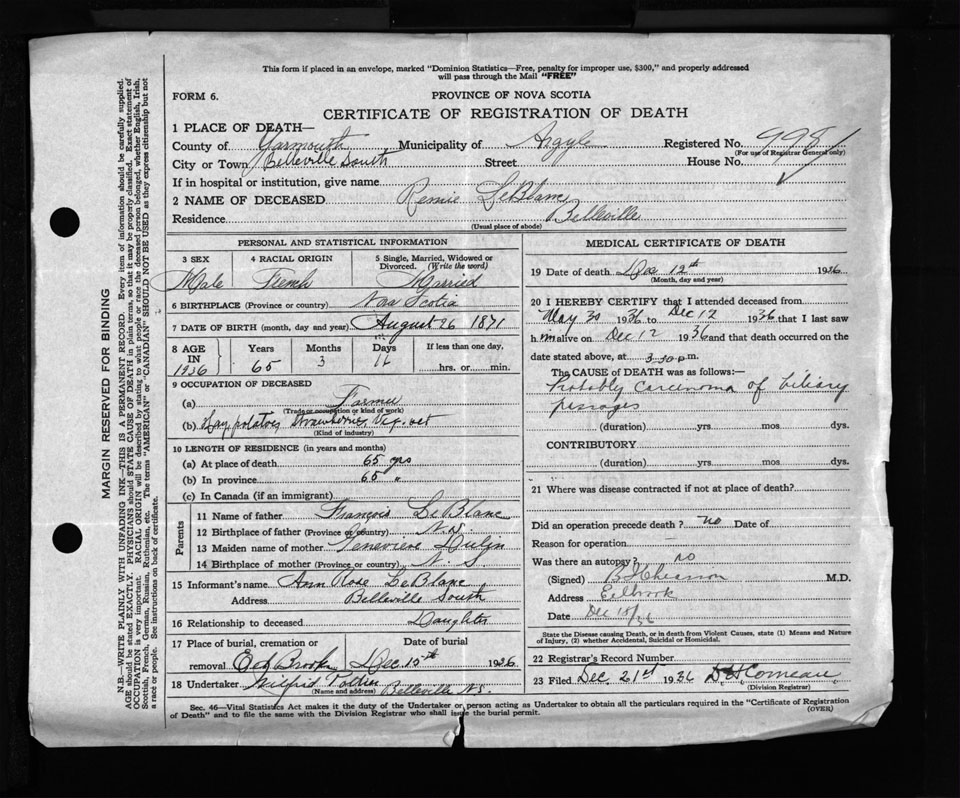 This form if placed in an envelope, marked "Dominion Statistics—Free, penalty for improper use, $300," and properly addressed
will pass through the Mail "FREE"
FORM 6.
PROVINCE OF NOVA SCOTIA
CERTIFICATE OF REGISTRATION OF DEATH
1 PLACE OF DEATH—
County of Yarmouth Municipality of Argyle Registered No. 998
(For use of Registrar General only)
City or Town Belleville South Street House No.
If in hospital or institution, give name
2 NAME OF DECEASED Remie LeBlanc
Residence Belleville
(Usual place of abode)
PERSONAL AND STATISTICAL INFORMATION
3 SEX 4 RACIAL ORIGIN 5 Single, Married, Widowed or Divorced. (Write the word)
Male French Married
6 BIRTHPLACE (Province or country) Nova Scotia
7 DATE OF BIRTH (month, day and year) August 26 1871
8 AGE IN 1936 Years 65 Months 3 Days 16 If less than one day, hrs. or min.
9 OCCUPATION OF DECEASED
(a) Farmer
(Trade or occupation or kind of work)
(b) Hay, potatoes, Strawberries,
(Kind of industry)
10 LENGTH OF RESIDENCE (in years and months)
(a) At place of death 65 yrs
(b) In province 65 "
(c) In Canada (if an immigrant)
Parents
11 Name of father François LeBlanc
12 Birthplace of father (Province or country) N.S
13 Maiden name of mother Genevieve
14 Birthplace of mother (Province or country) N. S.
15 Informant's name Ann Rose LeBlanc
Address Belleville South
16 Relationship to deceased Daughter
17 Place of burial, cremation or removal Date of burial
Dec 15th 1936
18 Undertaker Wilfrid Pothier
(Name and address) Belleville N.S.
MEDICAL CERTIFICATE OF DEATH
19 Date of death Dec 12th 1936
(Month, day and year)
20 I HEREBY CERTIFY that I attended deceased from
May 30 1936 to Dec 12 1936 that I last saw
him alive on Dec 12 1936 and that death occurred on the
date stated above, at 3.30 p m.
The CAUSE OF DEATH was as follows:—
Probably carcinoma of biliary
passages
(duration) yrs. mos. dys.
CONTRIBUTORY
(duration) yrs. mos. dys.
21 Where was disease contracted if not at place of death?
Did an operation precede death? no Date of
Reason for operation
Was there an autopsy? no
(Signed) M.D.
Address Eelbrook
Date Dec 15/36
State the Disease causing Death, or in death from Violent Causes, state (1) Means and Nature
of Injury, (2) whether Accidental, Suicidal or Homicidal.
22 Registrar's Record Number
23 Filed Dec. 21st 1936 Comeau
(Division Registrar)
Sec. 46—Vital Statistics Act makes it the duty of the Undertaker or person acting as Undertaker to obtain all the particulars required in the "Certificate of Registration
of Death" and to file the same with the Division Registrar who shall issue the burial permit.
(OVER)
MARGIN RESERVED FOR BINDING
N.B.—WRITE PLAINLY WITH UNFADING INK—THIS IS A PERMANENT RECORD. Every item of information should be carefully supplied.
AGE should be stated EXACTLY. PHYSICIANS should STATE CAUSE OF DEATH in plain terms, so that it may be properly classified. Exact statement of
OCCUPATION is very important. RACIAL ORIGIN will be described by stating to what people or race the deceased person belonged, whether English, Irish,
Scottish, French, German, Russian, Ruthenian, etc. The terms "AMERICAN" or "CANADIAN" SHOULD NOT BE USED as they express citizenship but not
a race or people. See instructions on back of certificate.